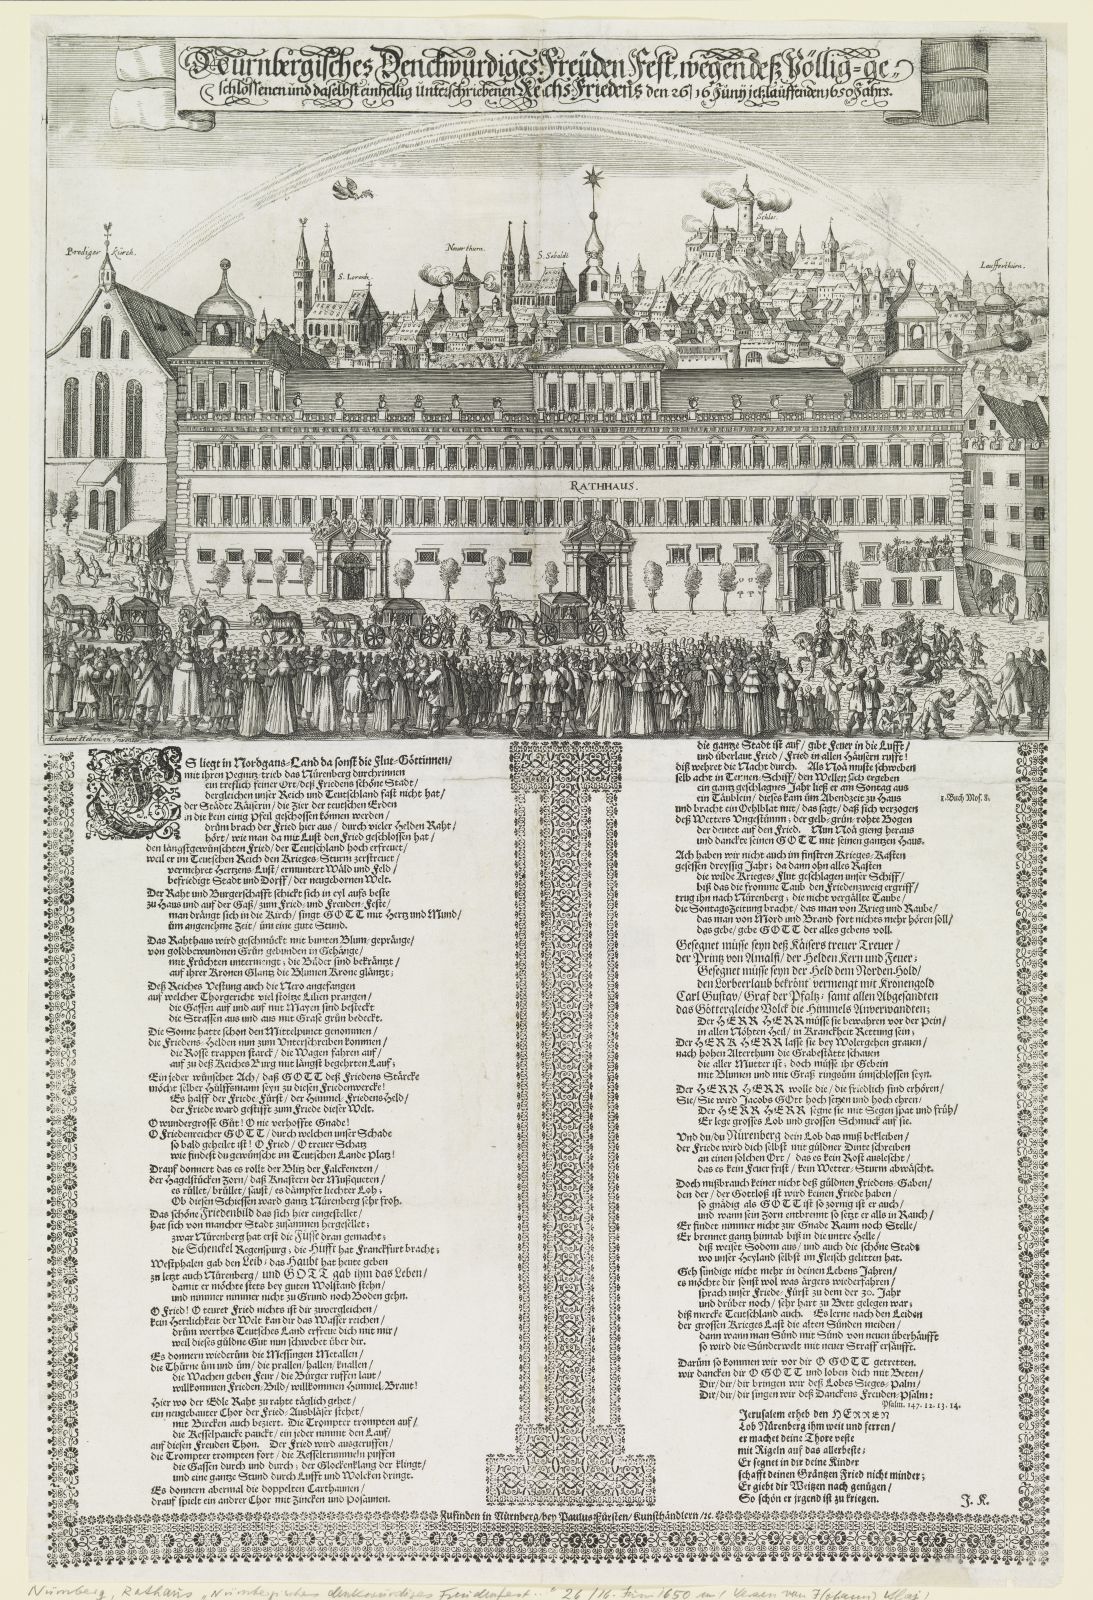 Nürnbergisches Denckwürdiges Freüden Fest, wegen deß Völlig-ge-
schlossenen und daselbst einhellig unterschriebenen Reichs Friedens den 26/16 Junÿ jetzlauffenden 1650 Jahrs.
Prediger Kürch.
S. Lorentz
Neuer thurn.
S. Sebaldt
Schlos.
Laufferthürn.
RATHHAUS.
ES liegt in Nordgans-Land da sonst die Flut-Göttinnen/
mit ihren Pegnitz-trieb das Nürenberg durchrinnen
ein treflich feiner Ort/ deß Friedens schöne Stadt/
dergleichen unser Reich und Teutschland fast nicht hat/
der Städte Käiserin/ die Zier der teutschen Erden
in die kein einig Pfeil geschossen können werden/
drüm brach der Fried hier aus / durch vieler Helden Raht/
hört/ wie man da mit Lust den Fried geschlossen hat/
den längstgewünschten Fried/ der Teutschland hoch erfreuet/
weil er im Teutschen Reich den Krieges-Sturm zerstreuet/
vermehret Hertzens Lust/ ermuntert Wald und Feld/
befriedigt Stadt und Dorff/ der neugebornen Welt.
Der Raht und Burgerschafft schickt sich in eyl aufs beste
zu Haus und auf der Gaß/ zum Fried- und Freuden-Feste/
man drängt sich in die Kirch/ singt GOTT mit Hertz und Mund/
üm angenehme Zeit/ üm eine gute Stund.
Das Rahthaus wird geschmückt mit bunten Blum-gepränge/
von goldbewundnen Grün gebunden in Gehänge/
mit Früchten untermengt; die Bilder sind bekräntzt/
auf ihrer Kronen Glantz die Blumen Krone gläntzt;
Deß Reiches Vestung auch die Nero angefangen
auf welcher Thorgericht viel stoltze Lilien prangen/
die Gassen auf und auf mit Mayen sind besteckt
die Strassen aus und aus mit Grase grün bedeckt.
Die Sonne hatte schon den Mittelpunct genommen/
die Friedens-Helden nun zum Unterschreiben kommen/
die Rosse trappen starck/ die Wagen fahren auf/
auf zu deß Reiches Burg mit längst begehrten Lauf;
Ein jeder wünschet Ach/ daß GOTT deß Friedens Stärcke
möcht selber Hülffsmann seyn zu diesen Friedenwercke!
Es halff der Friede-Fürst/ der Himmel-Friedens-Held/
der Friede ward gestifft zum Friede dieser Welt.
O wundergrosse Güt! O nie verhoffte Gnade!
O Friedenreicher GOTT/ durch welchen unser Schade
so bald geheilet ist! O Fried/ O treuer Schatz
wie findest du gewünscht im Teutschen Lande Platz!
Drauf donnert das es rollt der Blitz der Falckeneten/
der Hagelstücken Zorn/ daß Knastern der Mußqueten/
es rüllet/ brüllet/ saust/ es dämpfet liechter Loh;
Ob diesen Schiessen ward gantz Nürenberg sehr froh.
Das schöne Friedenbild das sich hier eingestellet/
hat sich von mancher Stadt zusammen hergesellet;
zwar Nürenberg hat erst die Füsse dran gemacht;
die Schenckel Regenspurg; die Hüfft hat Franckfurt bracht;
Westphalen gab den Leib/ das Haubt hat heute geben
zu letzt auch Nürenberg/ und GOTT gab ihm das Leben/
damit er möchte stets bey guten Wolstand stehn/
und nimmer nimmer nicht zu Grund noch Boden gehn.
O Fried! O teurer Fried nichts ist dir zuvergleichen/
kein Herrlichkeit der Welt kan dir das Wasser reichen/
drüm werthes Teutsches Land erfreue dich mit mir/
weil dieses güldne Gut nun schwebet über dir.
Es donnern wiederüm die Messingen Metallen/
die Thürne üm und üm/ die prallen/ hallen/ knallen/
die Wachen geben Feur/ die Bürger ruffen laut/
willkommen Frieden-Bild/ willkommen Himmel-Braut!
Hier wo der Edle Raht zu rahte täglich gehet/
ein neugebauter Chor der Fried-Ausbläser stehet/
mit Bircken auch beziert. Die Trompeter trompten auf/
die Kesselpaucke pauckt/ ein jeder nimmt den Lauf/
auf diesen Freuden Thon. Der Fried wird ausgeruffen/
die Trompter trompten fort/ die Kesseltrummeln puffen
die Gassen durch und durch; der Glockenklang der klingt/
und eine gantze Stund durch Lufft und Wolcken dringt.
Es donnern abermal die doppelten Carthaunen/
drauf spielt ein andrer Chor mit Zincken und Posaunen.
die gantze Stadt ist auf/ gibt Feuer in die Lufft/
und überlaut Fried/ Fried in allen Häusern rufft!
diß wehret die Nacht durch. Als Noä muste schweben
selb acht in Tennen-Schiff/ den Wellen sich ergeben
ein gantz geschlagnes Jahr ließ er am Sontag aus
ein Täublein/ dieses kam üm Abendzeit zu Haus
und bracht ein Oehlblat mit/ das sagt/ daß sich verzogen
deß Wetters Ungestümm; der gelb-grün-rohte Bogen
der deutet auf den Fried. Nun Noä gieng heraus
und danckte seinen GOTT mit seinen gantzen Haus.
1. Buch Mos. 8.
Ach haben wir nicht auch im finstren Krieges-Kasten
gesessen dreyssig Jahr; da dann ohn alles Rasten
die wilde Krieges-Flut geschlagen unser Schiff/
biß das die fromme Taub den Friedenzweig ergriff/
trug ihn nach Nürenberg; die nicht vergällte Taube/
die SontagsZeitung bracht/ das man von Krieg und Raube/
das man von Mord und Brand fort nichts mehr hören soll/
das gebe/ gebe GOTT der alles gebens voll.
Gesegnet müsse seyn deß Käisers treuer Treuer/
der Printz von Amalfi/ der Helden Kern und Feuer;
Gesegnet müsse seyn der Held dem Norden-Hold/
den Lorbeerlaub bekrönt vermengt mit Kronengold
Carl Gustav/ Graf der Pfaltz; samt allen Abgesandten
das Göttergleiche Volck die Himmels Anverwandten;
Der HERR HERR müsse sie bewahren vor der Pein/
in allen Nöhten Heil/ in Kranckheit Rettung sein;
Der HERR HERR lasse sie bey Wolergehen grauen/
nach hohen Alterthum die Grabestätte schauen
die aller Mutter ist; doch müsse ihr Gebein
mit Blumen und mit Graß ringsüm ümschlossen seyn.
Der HERR HERR wolle die/ die friedlich sind erhören/
Sie/ Sie wird Jacobs GOtt hoch setzen und hoch ehren/
Der HERR HERR segne sie mit Segen spat und früh/
Er lege grosses Lob und grossen Schmuck auf sie.
Und du/ du Nürenberg dein Lob das muß bekleiben/
der Friede wird dich selbst mit güldner Dinte schreiben
an einen solchen Ort/ das es kein Rost auslescht/
das es kein Feuer frist/ kein Wetter-Sturm abwäscht.
Doch mißbrauch keiner nicht deß güldnen Friedens-Gaben/
den der/ der Gottloß ist wird keinen Friede haben/
so gnädig als GOTT ist so zornig ist er auch/
und wann sein Zorn entbrennt so setzt er alls in Rauch/
Er findet nimmer nicht zur Gnade Raum noch Stelle/
Er brennet gantz hinnab biß in die untre Helle/
diß weiset Sodom aus/ und auch die schöne Stadt
wo unser Heyland selbst im Fleisch gelitten hat.
Geh sündige nicht mehr in deinen Lebens Jahren/
es möchte dir sonst wol was ärgers wiederfahren/
sprach unser Friede-Fürst zu dem der 30. Jahr
und drüber noch/ sehr hart zu Bett gelegen war;
diß mercke Teutschland auch. Es lerne nach den Leiden
der grossen Krieges Last die alten Sünden meiden/
dann wann man Sünd mit Sünd von neuen überhäufft
so wird die Sünderwelt mit neuer Straff ersäufft.
Darüm so kommen wir vor dir O GOTT getretten.
wir dancken dir O GOTT und loben dich mit Beten/
Dir/ dir/ dir bringen wir deß Lobes Sieges-Palm/
Dir/ dir/ dir singen wir deß Danckens Freuden-Psalm:
Psalm. 147. 12. 13. 14.
Jerusalem erheb den HERREN
Lob Nürenberg ihm weit und ferren/
er machet deine Thore veste
mit Rigeln auf das allerbeste;
Er segnet in dir deine Kinder
schafft deinen Gräntzen Fried nicht minder;
Er giebt dir Weitzen nach genügen/
So schön er irgend ist zu kriegen.
J. K.
Zufinden in Nürnberg/ bey Paulus Fürsten/ Kunsthändlern/ ꝛc.
Nürnberg, Rathaus „Nürnbergisches denkwürdiges Freudenfest..." 26/16. Juni 1650 m/ Versen von J(ohann) Klaj)